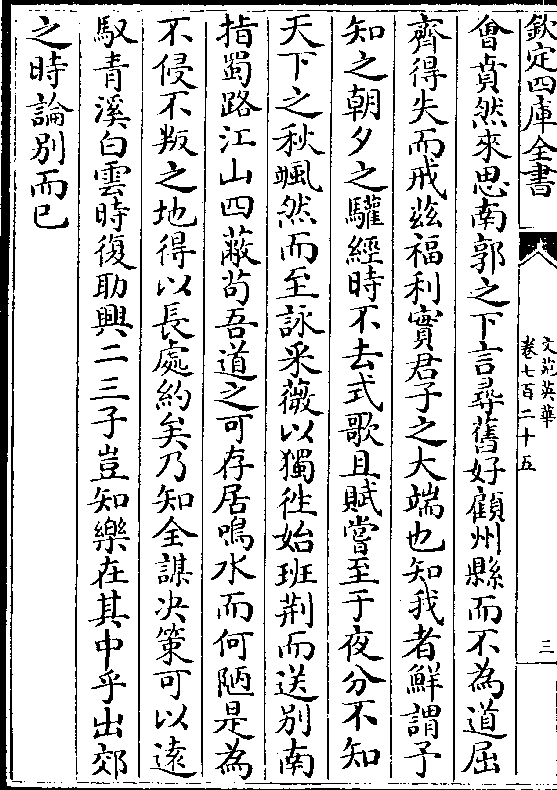 欽定四庫全書
文苑英華
卷七百二十五
三
會賁然來思南郭之下言尋舊好顧州縣而不為道屈
齊得失而戒茲福利實君子之大端也知我者鮮謂予
知之朝夕之驩經時不去式歌且賦嘗至于夜分不知
天下之秋颯然而至詠采薇以獨徃始班荆而送別南
指蜀路江山四蔽苟吾道之可存居鳴水而何陋是為
不侵不叛之地得以長處約矣乃知全謀决策可以遠
馭青溪白雲時復助興二三子豈知樂在其中乎出郊
之時論別而已